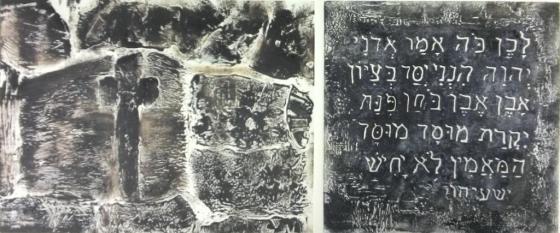 לָכֵן כֹּה אָמַר אֲדֹנָי
יְהוִה הִנְנִי יִסַּד בְּצִיּוֹן
אָבֶן אֶבֶן בֹּחַן פִּנַּת
יִקְרַת מוּסָד מוּסָּד
הַמַּאֲמִין לֹא יָחִישׁ
ישעיהו